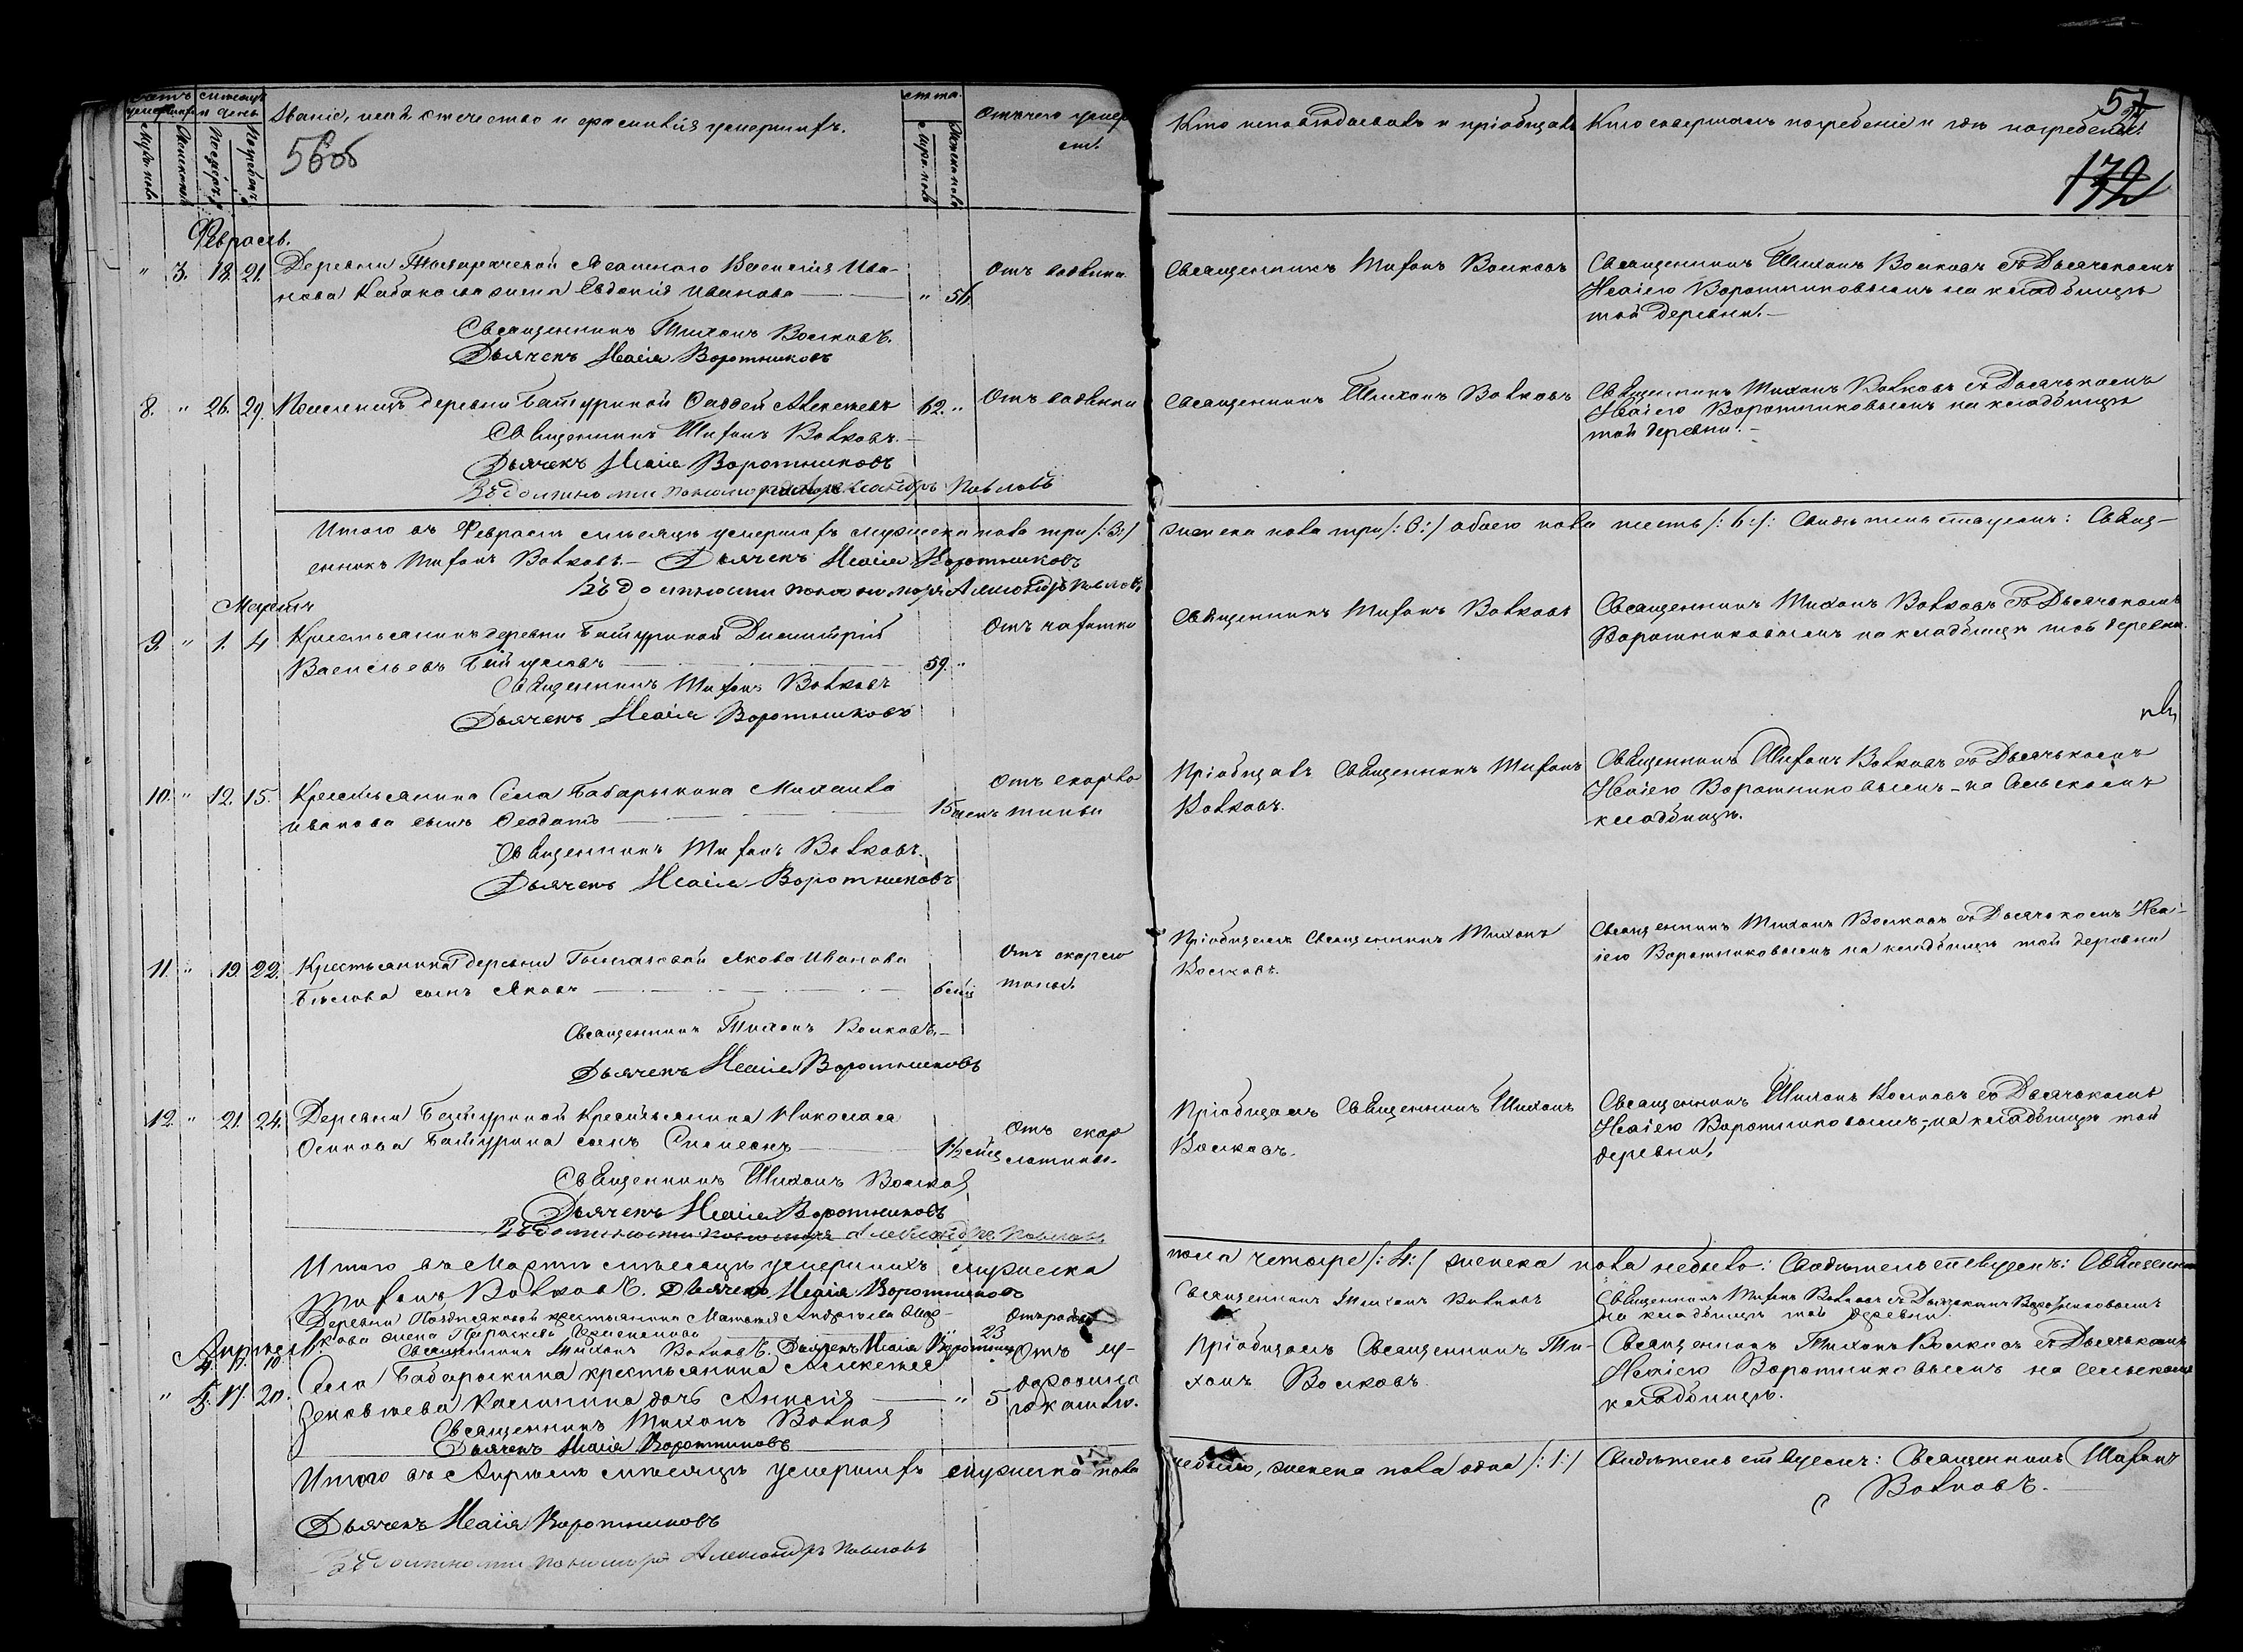 Счетъ умершихъ
Мѣсяцъ и день
Званіе, имя, отчество и фамилія умершихъ.
Лѣта
Отъ чего умеръ
Кто исповѣдывалъ и пріобщалъ
Кто совершалъ погребеніе и гдѣ погребены
56об
57
132
Февраль.
" 3. 18. 21. Деревни Ясашнаго Василія Ива-
нова жена Евдокія Иванова " 56.
Отъ
Священникъ Тихонъ Волковъ
Священникъ Тихонъ Волковъ съ Дьячькомъ
Исаіею Воротниковымъ на кладбищѣ
той деревни.
Священникъ Тихонъ Волковъ.
Дьячекъ Исаія Воротниковъ
8. " 26. 29. Поселенецъ деревни Батуриной Фаддей Алексѣевъ 62. "
Отъ
Священникъ Тихонъ Волковъ
Священникъ Тихонъ Волковъ съ Дьячькомъ
Исаіею Воротниковымъ на кладбищѣ
той деревни.
Священникъ Тихонъ Волковъ.
Дьячекъ Исаія Воротниковъ
Въ должности пономаря Александръ Павловъ
Итого въ Февралѣ мѣсяцѣ умершихъ мужеска пола три /:3:/ женска пола три /:3:/ обоего пола шесть /:6:/ Свидѣтельствуемъ: Свящ-
енникъ Тихонъ Волковъ. Дьячекъ Исаія Воротниковъ
Въ должности пономаря Александръ Павловъ
Мартъ
9. " 1. 4 Крестьянинъ деревни Батуриной Димитрій
Васильевъ 59. "
Отъ чахотки
Священникъ Тихонъ Волковъ
Священникъ Тихонъ Волковъ съ Дьячькомъ
Воротниковымъ на кладбищѣ той деревни.
Священникъ Тихонъ Волковъ
Дьячекъ Исаія Воротниковъ
10. " 12. 15. Крестьянина Села Бабарыкина Михаила
Иванова сынъ Феодотъ
Отъ скарла-
тины
Пріобщалъ Священникъ Тихонъ
Волковъ.
Священникъ Тихонъ Волковъ съ Дьячькомъ
Исаіею Воротниковымъ на Сельскомъ
кладбищѣ.
Священникъ Тихонъ Волковъ.
Дьячекъ Исаія Воротниковъ
11. " 19 22. Крестьянина деревни Якова Иванова
Бѣлова сынъ Яковъ
Отъ скарла-
тины.
Пріобщалъ Священникъ Тихонъ
Волковъ.
Священникъ Тихонъ Волковъ съ Дьячькомъ Иса-
іею Воротниковымъ на кладбищѣ той деревни
Священникъ Тихонъ Волковъ.
Дьячекъ Исаія Воротниковъ
12. " 21. 24. Деревни Батуриной Крестьянина Николая
Осипова Батурина сынъ Симеонъ
Отъ скар-
латины.
Пріобщалъ Священникъ Тихонъ
Волковъ.
Священникъ Тихонъ Волковъ съ Дьячькомъ
Исаіею Воротниковымъ, на кладбищѣ той
деревни,
Священникъ Тихонъ Волковъ
Дьячекъ Исаія Воротниковъ
Въ должности пономаря Александръ Павловъ
Итого въ Мартѣ мѣсяцѣ умершихъ мужеска пола четыре /:4:/ женска пола небыло: Свидѣтельствуемъ: Священникъ
Тихонъ Волковъ. Дьячекъ Исаія Воротниковъ
Деревни крестьянина Андреева
жена Параскева 23
Отъ родовъ
Священникъ Тихонъ Волковъ
Священникъ Тихонъ Волковъ съ Дьячькомъ Воротниковымъ
на кладбищѣ той деревни
Апрѣль
Священникъ Тихонъ Волковъ. Дьячекъ Исаія Воротниковъ
" 5. 17. 20. Села Бабарыкина крестьянина Алексѣя
Калинина дочь Анисія " 5
Пріобщалъ Священникъ Ти-
хонъ Волковъ
Священникъ Тихонъ Волковъ съ Дьячькомъ
Исаіею Воротниковымъ на сельскомъ
кладбищѣ.
Священникъ Тихонъ Волковъ
Дьячекъ Исаія Воротниковъ
Итого въ Апрѣлѣ мѣсяцѣ умершихъ мужеска пола небыло, женска пола одна /:1:/ Свидѣтельствуемъ: Священникъ Тихонъ
Волковъ.
Дьячекъ Исаія Воротниковъ
Въ должности пономаря Александръ Павловъ